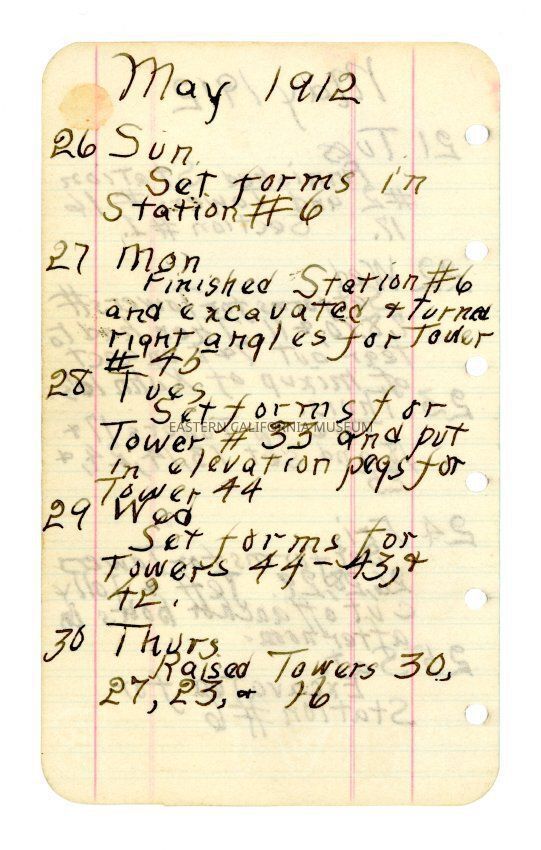 May 1912
26 Sun.
Set forms in
Station # 6
27 Mon
Finished Station #6
and excavated & turned
right angles for Tower
# 45
28 Tues
Set forms for
EASTERN CALIFORNIA MUSEUM
Tower # 33 and put
in elevation pegs for
Tower 44
29 Wed
Set forms for
Towers 44-43, &
42.
30 Thurs
Raised Towers 30,
27, 23, & 16